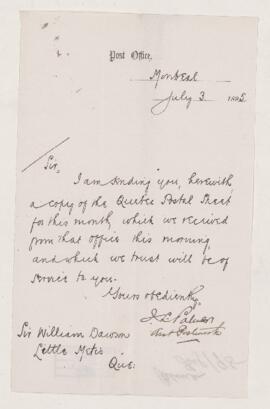 Post Office,
Montreal
July 3 1895
Sir,
I am sending you, herewith,
a copy of the Quebec Postal Sheet
for this month, which we received
from that office this morning,
and which we trust will be of
service to you.
Yours obediently,
Palmer
Asst Postmtr
Sir William Dawson
Little Metis
Que: